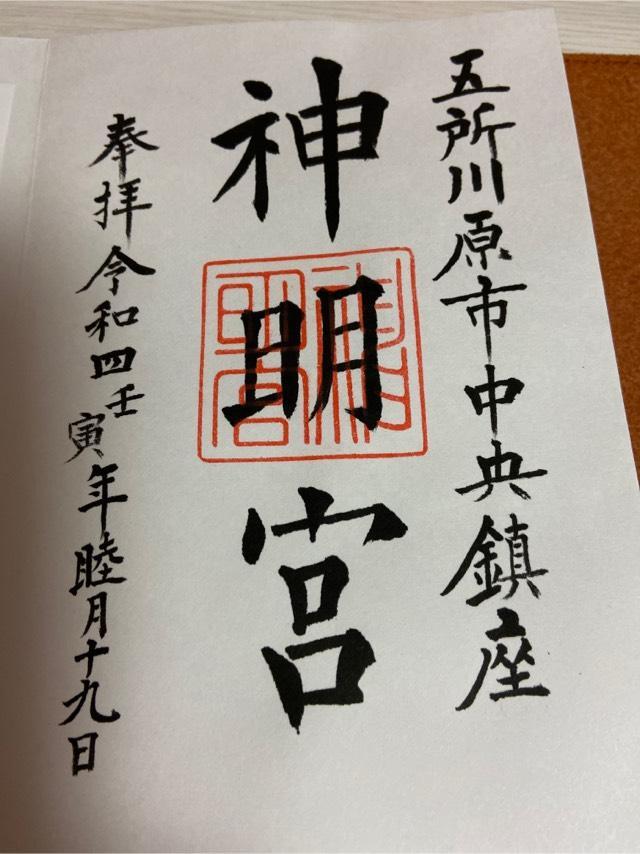 五所川原市中央鎮座
神明宮
神明宮
奉拝令和四壬寅年睦月十九日